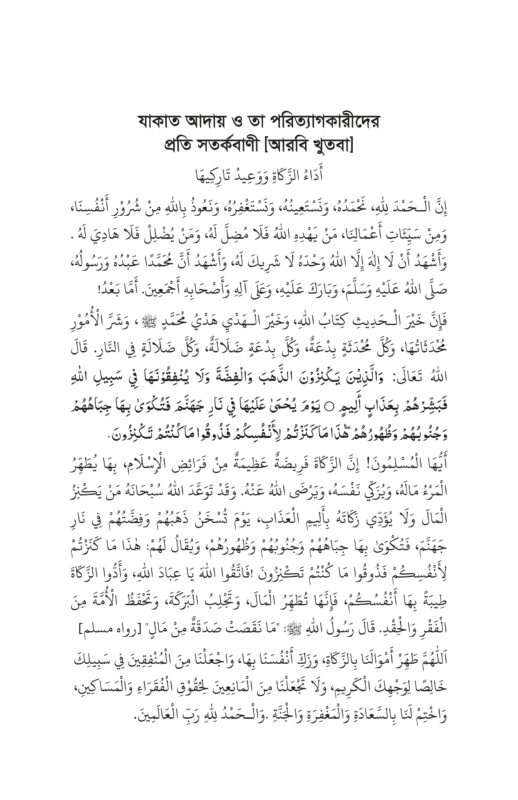 যাকাত আদায় ও তা পরিত্যাগকারীদের
প্রতি সতর্কবাণী [আরবি খুতবা]
أَدَاءُ الزَّكَاةِ وَوَعِيدُ تَارِكِيهَا
إِنَّ الْـحَمْدَ لِلهِ، نَحْمَدُهُ، وَنَسْتَعِينُهُ، وَنَسْتَغْفِرُهُ، وَنَعُوذُ بِاللهِ مِنْ شُرُوْرِ أَنْفُسِنَا،
وَمِنْ سَيِّئَاتِ أَعْمَالِنَا، مَنْ يَهْدِهِ اللهُ فَلَا مُضِلَّ لَهُ، وَمَنْ يُضْلِلْ فَلَا هَادِيَ لَهُ .
وَأَشْهَدُ أَنْ لَا إِلٰهَ إِلَّا اللهُ وَحْدَهُ لَا شَرِيكَ لَهُ، وَأَشْهَدُ أَنَّ مُحَمَّدًا عَبْدُهُ وَرَسُولُهُ،
صَلَّى اللهُ عَلَيْهِ وَسَلَّمَ، وَبَارَكَ عَلَيْهِ، وَعَلَى آلِهِ وَأَصْحَابِهِ أَجْمَعِينَ. أَمَّا بَعْدُ!
فَإِنَّ خَيْرَ الْـحَدِيثِ كِتَابُ اللهِ، وَخَيْرَ الْـهَدْيِ هَدْيُ مُحَمَّدٍ ﷺ ، وَشَرَّ الْأُمُوْرِ
مُحْدَثَاتُهَا، وَكُلَّ مُحْدَثَةٍ بِدْعَةٌ، وَكُلَّ بِدْعَةٍ ضَلَالَةٌ، وَكُلَّ ضَلَالَةٍ فِي النَّارِ. قَالَ
اللهُ تَعَالَى: وَالَّذِيْنَ يَكْنِزُوْنَ الذَّهَبَ وَالْفِضَّةَ وَلَا يُنْفِقُوْنَهَا فِي سَبِيلِ اللهِ
فَبَشِّرْهُمْ بِعَذَابٍ أَلِيمٍ ○ يَوْمَ يُحْمَىٰ عَلَيْهَا فِي نَارِ جَهَنَّمَ فَتُكْوَىٰ بِهَا جِبَاهُهُمْ
وَجُنُوبُهُمْ وَظُهُورُهُمْ هٰذَا مَا كَنَزْتُمْ لِأَنْفُسِكُمْ فَذُوقُوا مَا كُنْتُمْ تَكْنِزُونَ.
أَيُّهَا الْمُسْلِمُونَ! إِنَّ الزَّكَاةَ فَرِيضَةٌ عَظِيمَةٌ مِنْ فَرَائِضِ الْإِسْلَامِ، بِهَا يُطَهِّرُ
الْمَرْءُ مَالَهُ، وَيُزَكِّي نَفْسَهُ، وَيَرْضَى اللهُ عَنْهُ. وَقَدْ تَوَعَّدَ اللهُ سُبْحَانَهُ مَنْ يَكْنِزُ
الْمَالَ وَلَا يُؤَدِّي زَكَاتَهُ بِأَلِيمِ الْعَذَابِ، يَوْمَ تُسْخَنُ ذَهَبُهُمْ وَفِضَّتُهُمْ فِي نَارِ
جَهَنَّمَ، فَتُكْوَىٰ بِهَا جِبَاهُهُمْ وَجُنُوبُهُمْ وَظُهُورُهُمْ، وَيُقَالُ لَهُمْ: هٰذَا مَا كَنَزْتُمْ
لِأَنْفُسِكُمْ فَذُوقُوا مَا كُنْتُمْ تَكْنِزُونَ !فَاتَّقُوا اللهَ يَا عِبَادَ اللهِ، وَأَدُّوا الزَّكَاةَ
طِيبَةً بِهَا أَنْفُسُكُمْ، فَإِنَّهَا تُطَهِّرُ الْمَالَ، وَتَجْلِبُ الْبَرَكَةَ، وَتَحْفَظُ الْأُمَّةَ مِنَ
الْفَقْرِ وَالْحِقْدِ. قَالَ رَسُولُ اللهِ ﷺ: "مَا نَقَصَتْ صَدَقَةٌ مِنْ مَالٍ" [رواه مسلم]
اَللّٰهُمَّ طَهِّرْ أَمْوَالَنَا بِالزَّكَاةِ، وَزَكِّ أَنْفُسَنَا بِهَا، وَاجْعَلْنَا مِنَ الْمُنْفِقِينَ فِي سَبِيلِكَ
خَالِصًا لِوَجْهِكَ الْكَرِيمِ، وَلَا تَجْعَلْنَا مِنَ الْمَانِعِينَ لِحُقُوْقِ الْفُقَرَاءِ وَالْمَسَاكِينِ،
وَاخْتِمْ لَنَا بِالسَّعَادَةِ وَالْمَغْفِرَةِ وَالْجَنَّةِ .وَالْـحَمْدُ لِلهِ رَبِّ الْعَالَمِينَ.